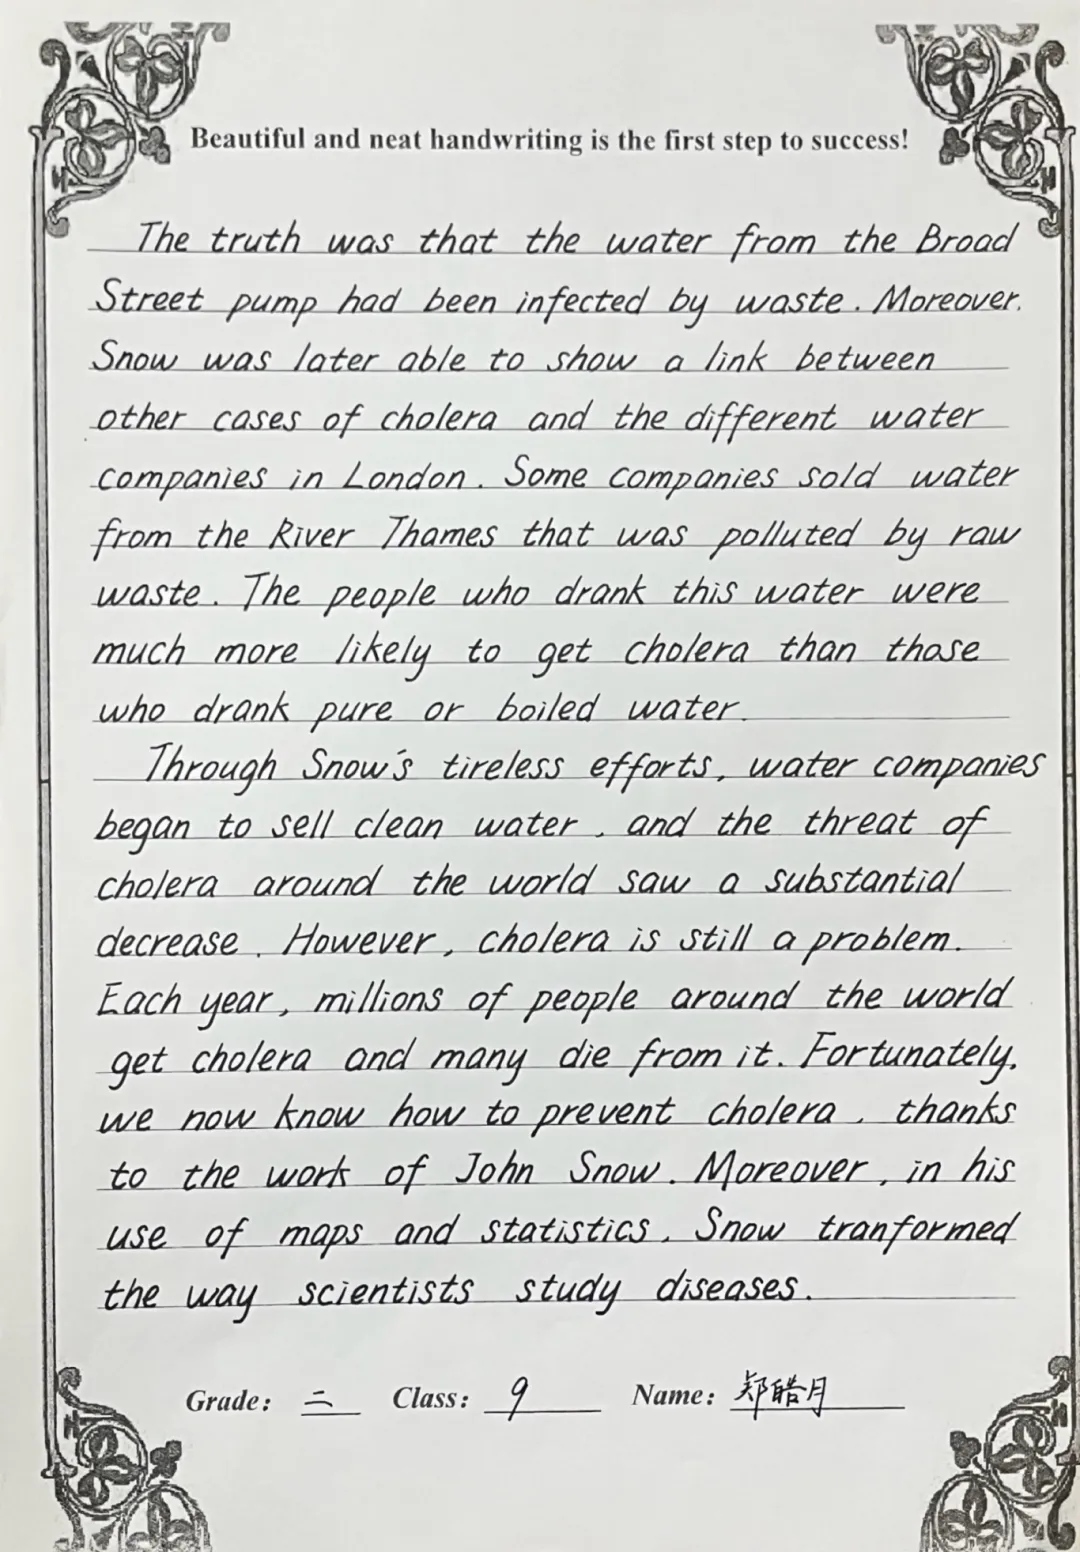 Beautiful and neat handwriting is the first step to success!
The truth was that the water from the Broad
Street pump had been infected by waste. Moreover,
Snow was later able to show a link between
other cases of cholera and the different water
companies in London. Some companies sold water
from the River Thames that was polluted by raw
waste. The people who drank this water were
much more likely to get cholera than those
who drank pure or boiled water.
Through Snow's tireless efforts, water companies
began to sell clean water, and the threat of
cholera around the world saw a substantial
decrease. However, cholera is still a problem.
Each year, millions of people around the world
get cholera and many die from it. Fortunately,
we now know how to prevent cholera, thanks
to the work of John Snow. Moreover, in his
use of maps and statistics, Snow tranformed
the way scientists study diseases.
Grade: 二 Class: 9 Name: 郑皓月